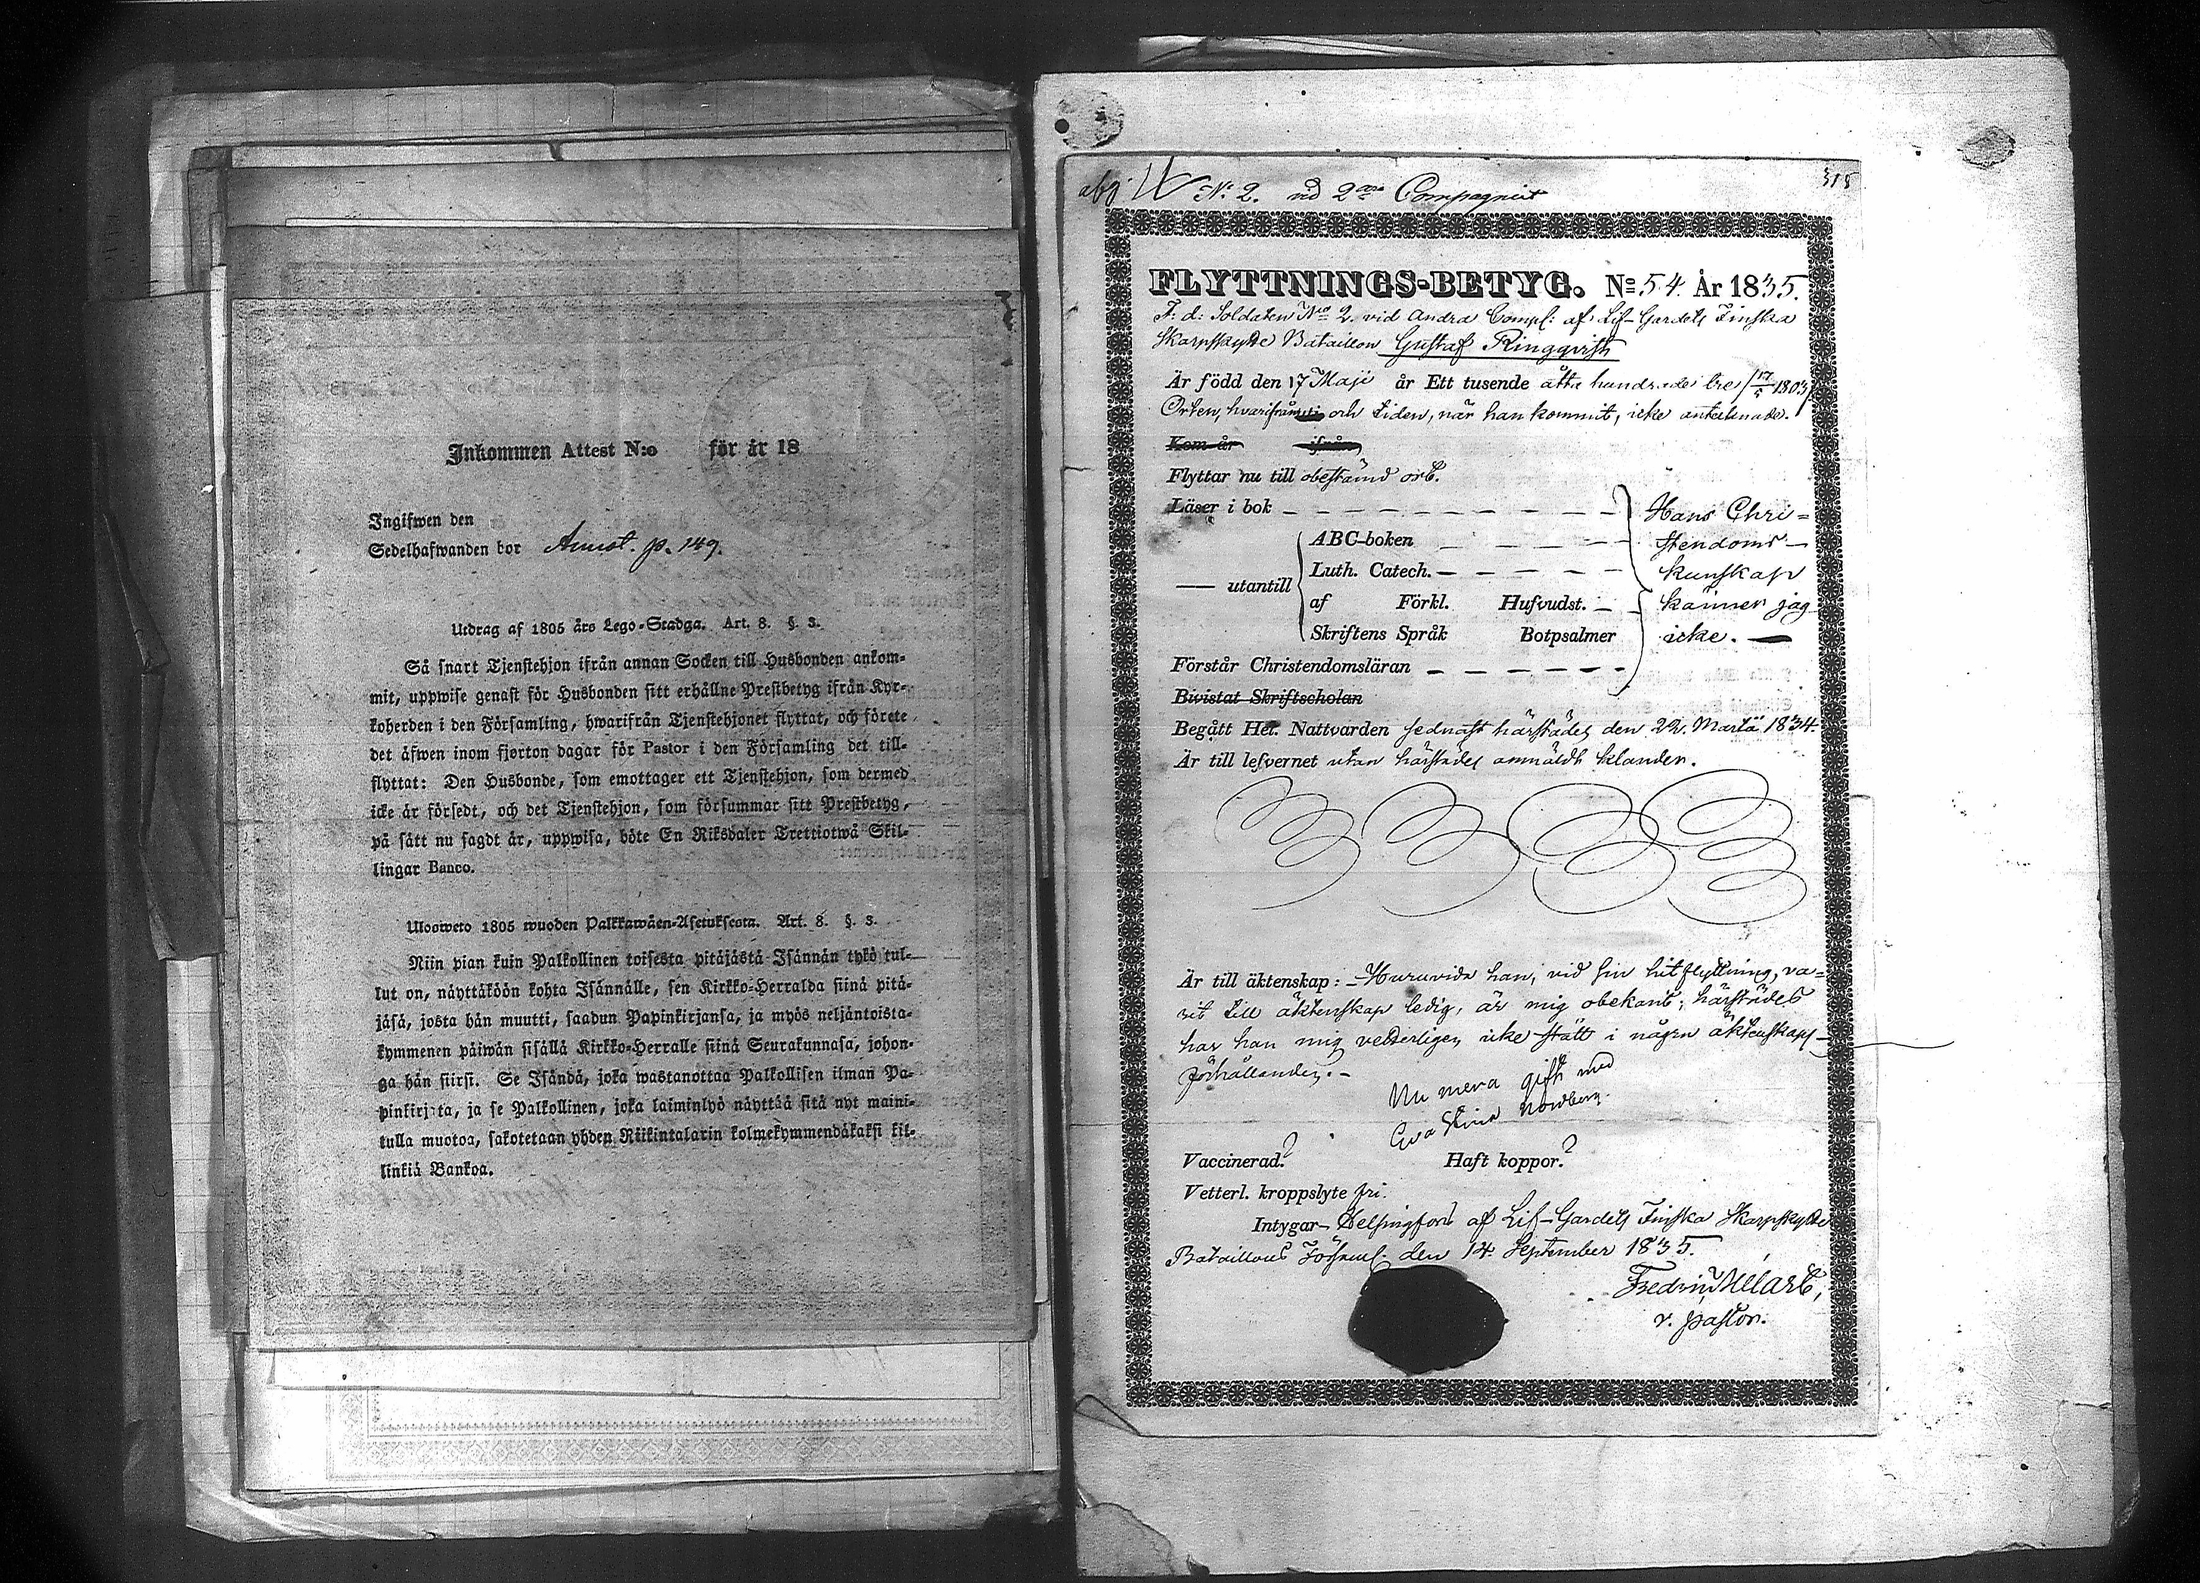 Inkommen Attest N:o för år 18
Ingifwen den
Sedelhafwanden bor Annot. p. 149.
Utdrag af 1805 års Lego-Stadga. Art. 8. §. 3.
Så snart Tjenstehjon ifrån annan Socken till Husbonden ankom-
mit, uppwise genast för Husbonden sitt erhållne Prestbetyg ifrån Kyr-
koherden i den Församling, hwarifrån Tjenstehjonet flyttat, och förete
det äfwen inom fjorton dagar för Pastor i den Församling det till-
flyttat: Den Husbonde, som emottager ett Tjenstehjon, som dermed
icke är försedt, och det Tjenstehjon, som försummar sitt Prestbetyg,
på sätt nu sagdt är, uppwisa, böte En Riksdaler Trettiotwå Skil-
lingar Banco.
Ulosweto 1805 wuoden Palkkawäen-Asetuksesta. Art. 8. §. 3.
Niin pian kuin Palkollinen toisesta pitäjästä Isännän tykö tul-
lut on, näyttäköön kohta Isännälle, sen Kirkko-Herralda siinä pitä-
jäsä, josta hän muutti, saadun Papinkirjansa, ja myös neljäntoista-
kymmenen päiwän sisällä Kirkko-Herralle siinä Seurakunnasa, johon-
ga hän siirsi. Se Isändä, joka wastanottaa Palkollisen ilman Pa-
pinkirjata, ja se Palkollinen, joka laiminlyö näyttää sitä nyt maini-
tulla muotoa, sakotetaan yhden Riikintalarin kolmekymmendäkaksi kil-
linkiä Bankoa.
315
abg. N:o 2. vid 2:dra Compagniet
FLYTTNINGS-BETYG. No 54. År 1835.
F. d. Soldaten No 2. vid Andra Comp: af Lif-Gardets Finska
Skarpskytte Bataillon Gustaf Ringqvist
Är född den 17 Maji år Ett tusende åtta hundrade tre (17/5 1803)
Orten, hvarifrån och tiden, när han kommit, icke antecknade.
Kom år ifrån
Flyttar nu till obestämd ort.
Läser i bok Hans Chri-
ABC-boken stendoms-
Luth. Catech. kunskap
utantill af Förkl. Hufvudst. känner jag
Skriftens Språk Botpsalmer icke.
Förstår Christendomsläran
Bivistat Skriftscholan
Begått H. Nattvarden sednast härstädes den 22. Martii 1834.
Är till lefvernet utan härstädes anmäldt klander.
Är till äktenskap: Huruvida han, vid sin hitflyttning, va-
rit till äktenskap ledig, är mig obekant; härstädes
har han mig vetterligen icke stått i någon äktenskaps-
förhållanden.-
Nu mera gift med
Eva Stina Nordberg.
Vaccinerad? Haft koppor?
Vetterl. kroppslyte fri.
Intygar Helsingfors af Lif-Gardets Finska Skarpskytte
Bataillons Församl. den 14. September 1835.
Fredric Mellart,
v. pastor.